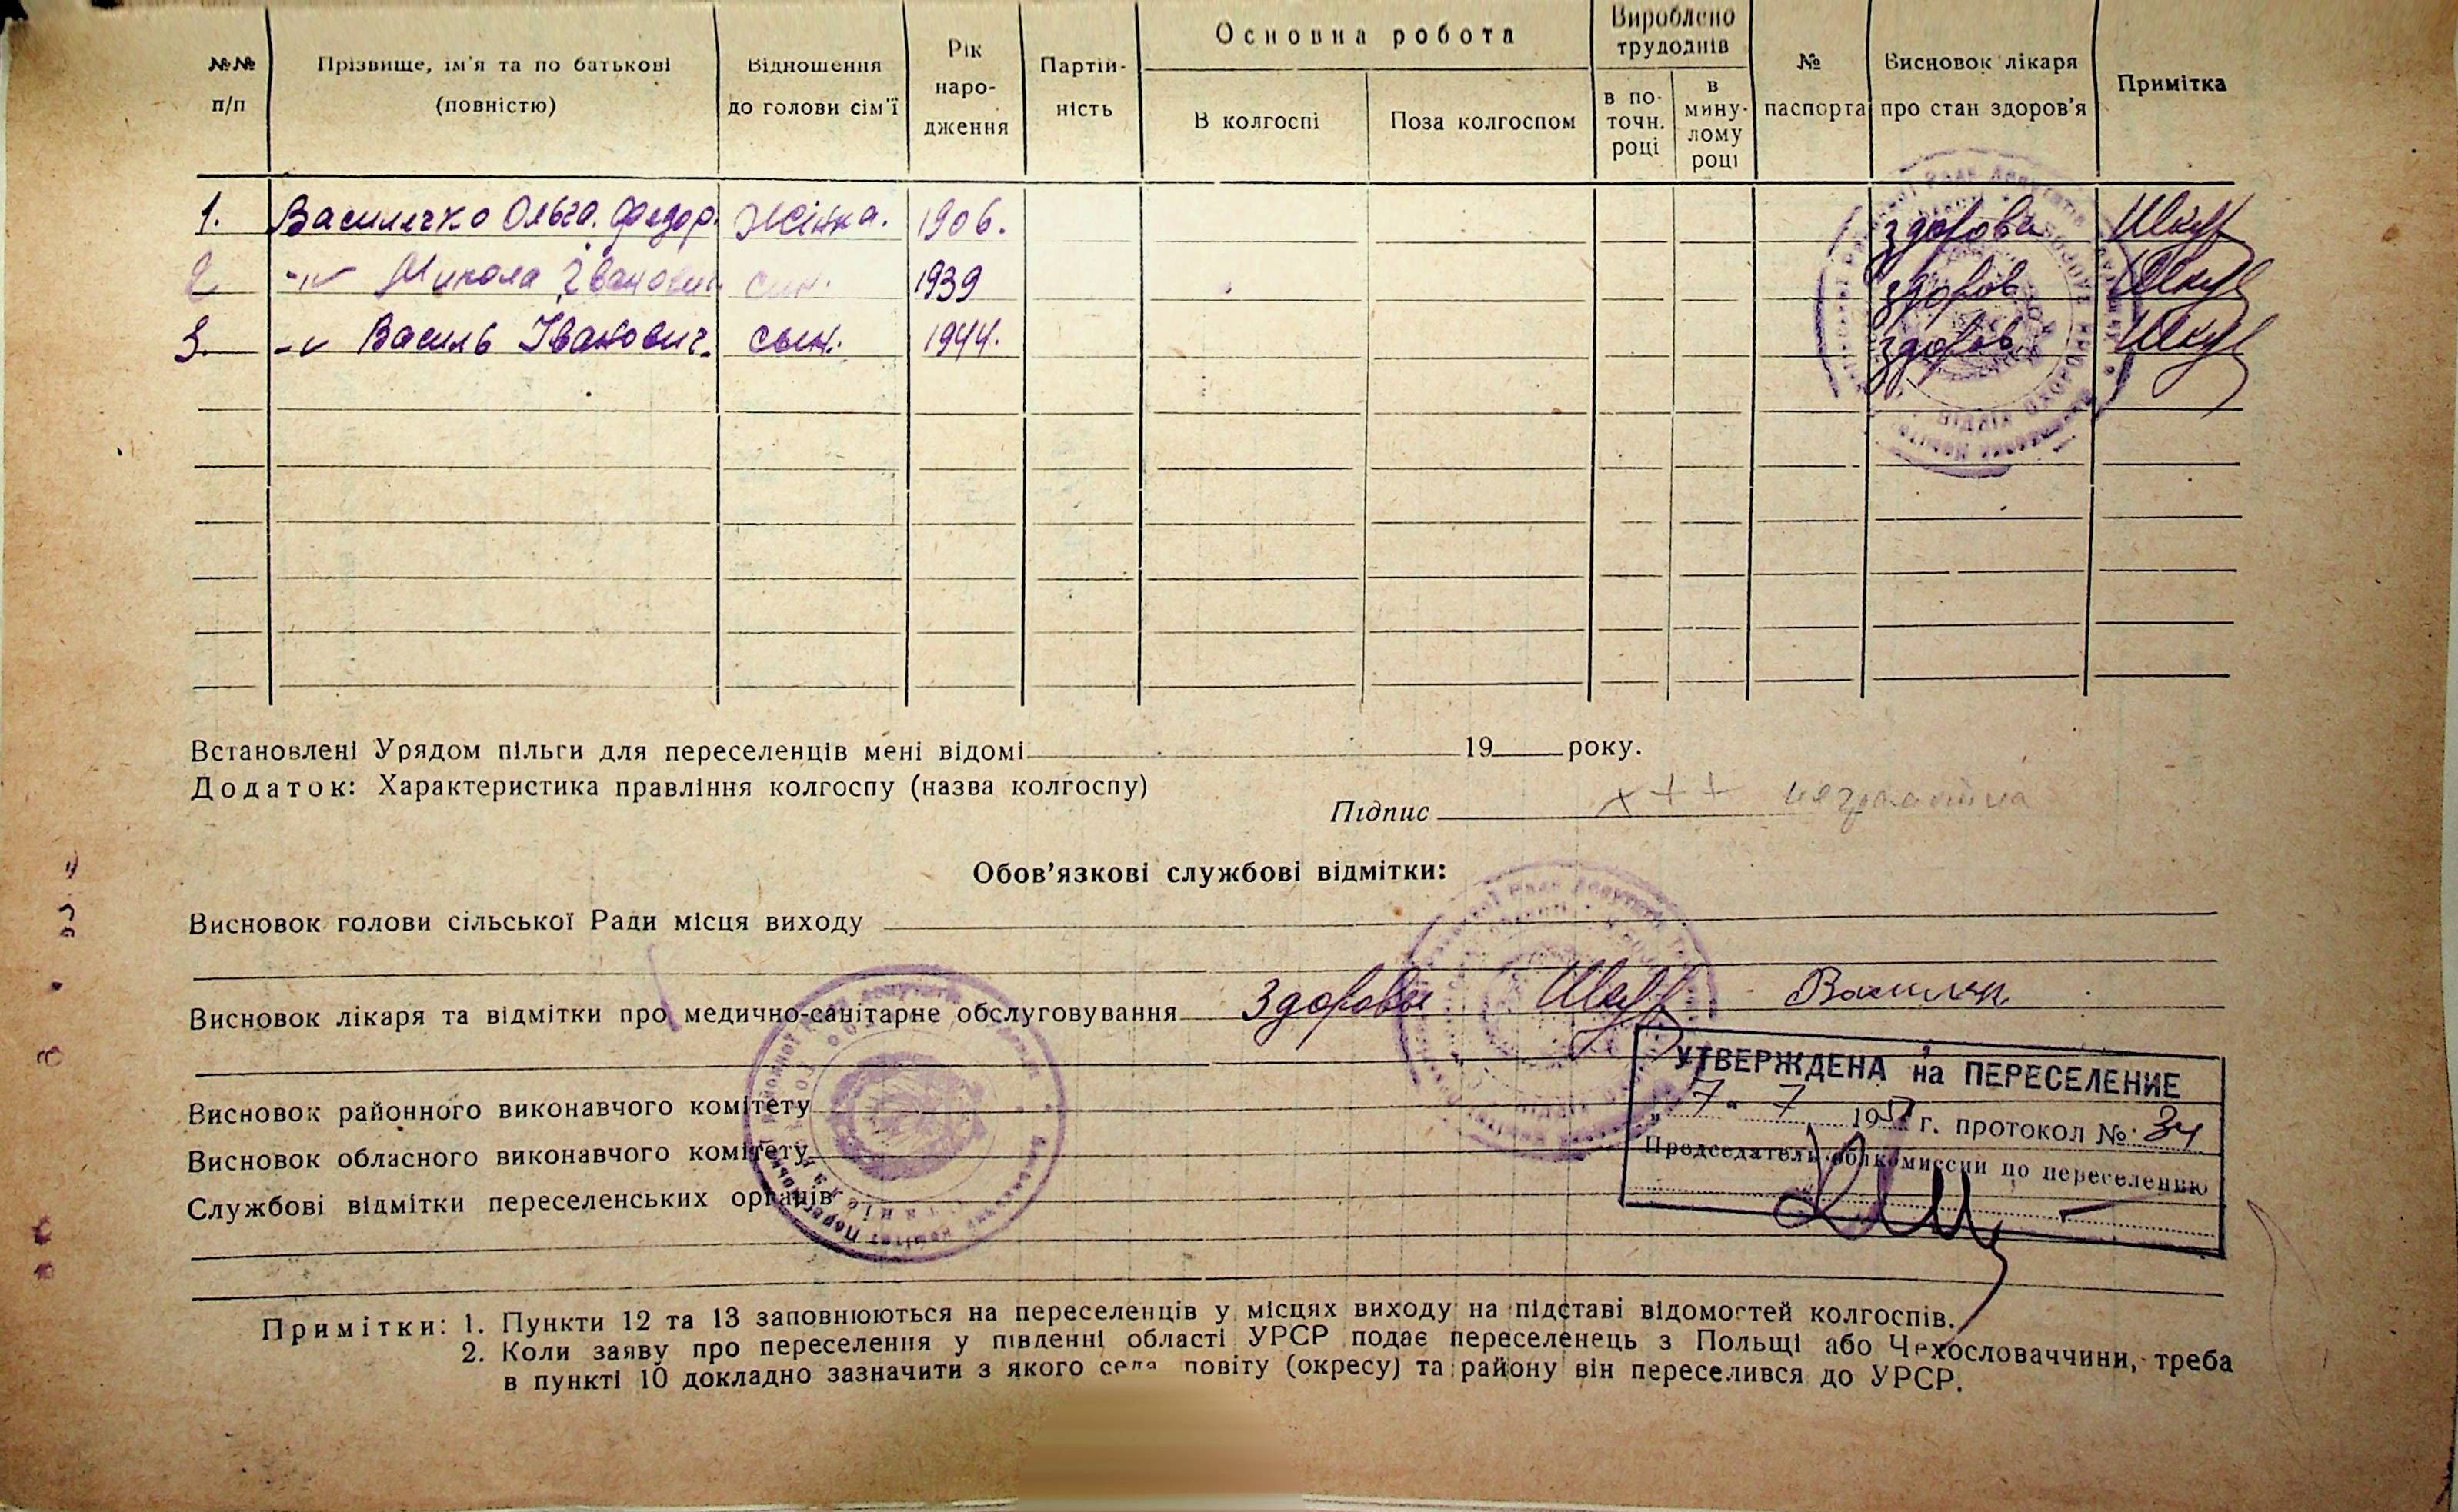 №№ п/п
Прізвище, ім'я та по батькові (повністю)
Відношення до голови сім'ї
Рік народження
Партійність
Основна робота
В колгоспі
Поза колгоспом
Вироблено трудоднів
в поточн. році
в минулому році
№ паспорта
Висновок лікаря про стан здоров'я
Примітка
1. Василечко Ольга. Федор. Жінка. 1906. здорова
2 -"- Микола Іванович син. 1939 здоров
3. -"- Василь Іванович. сын. 1944. здоров
Встановлені Урядом пільги для переселенців мені відомі 19 року.
Додаток: Характеристика правління колгоспу (назва колгоспу)
Підпис +++ неграмотна
Обов'язкові службові відмітки:
Висновок голови сільської Ради місця виходу
Висновок лікаря та відмітки про медично-санітарне обслуговування Здоровы
Висновок районного виконавчого комітету
Висновок обласного виконавчого комітету
Службові відмітки переселенських органів
УТВЕРЖДЕНА на ПЕРЕСЕЛЕНИЕ
"7" 7 195 г. протокол № 34
Председатель облкомиссии по переселению
Примітки: 1. Пункти 12 та 13 заповнюються на переселенців у місцях виходу на підставі відомостей колгоспів.
2. Коли заяву про переселення у південні області УРСР подає переселенець з Польщі або Чехословаччини, треба
в пункті 10 докладно зазначити з якого села повіту (окресу) та району він переселився до УРСР.